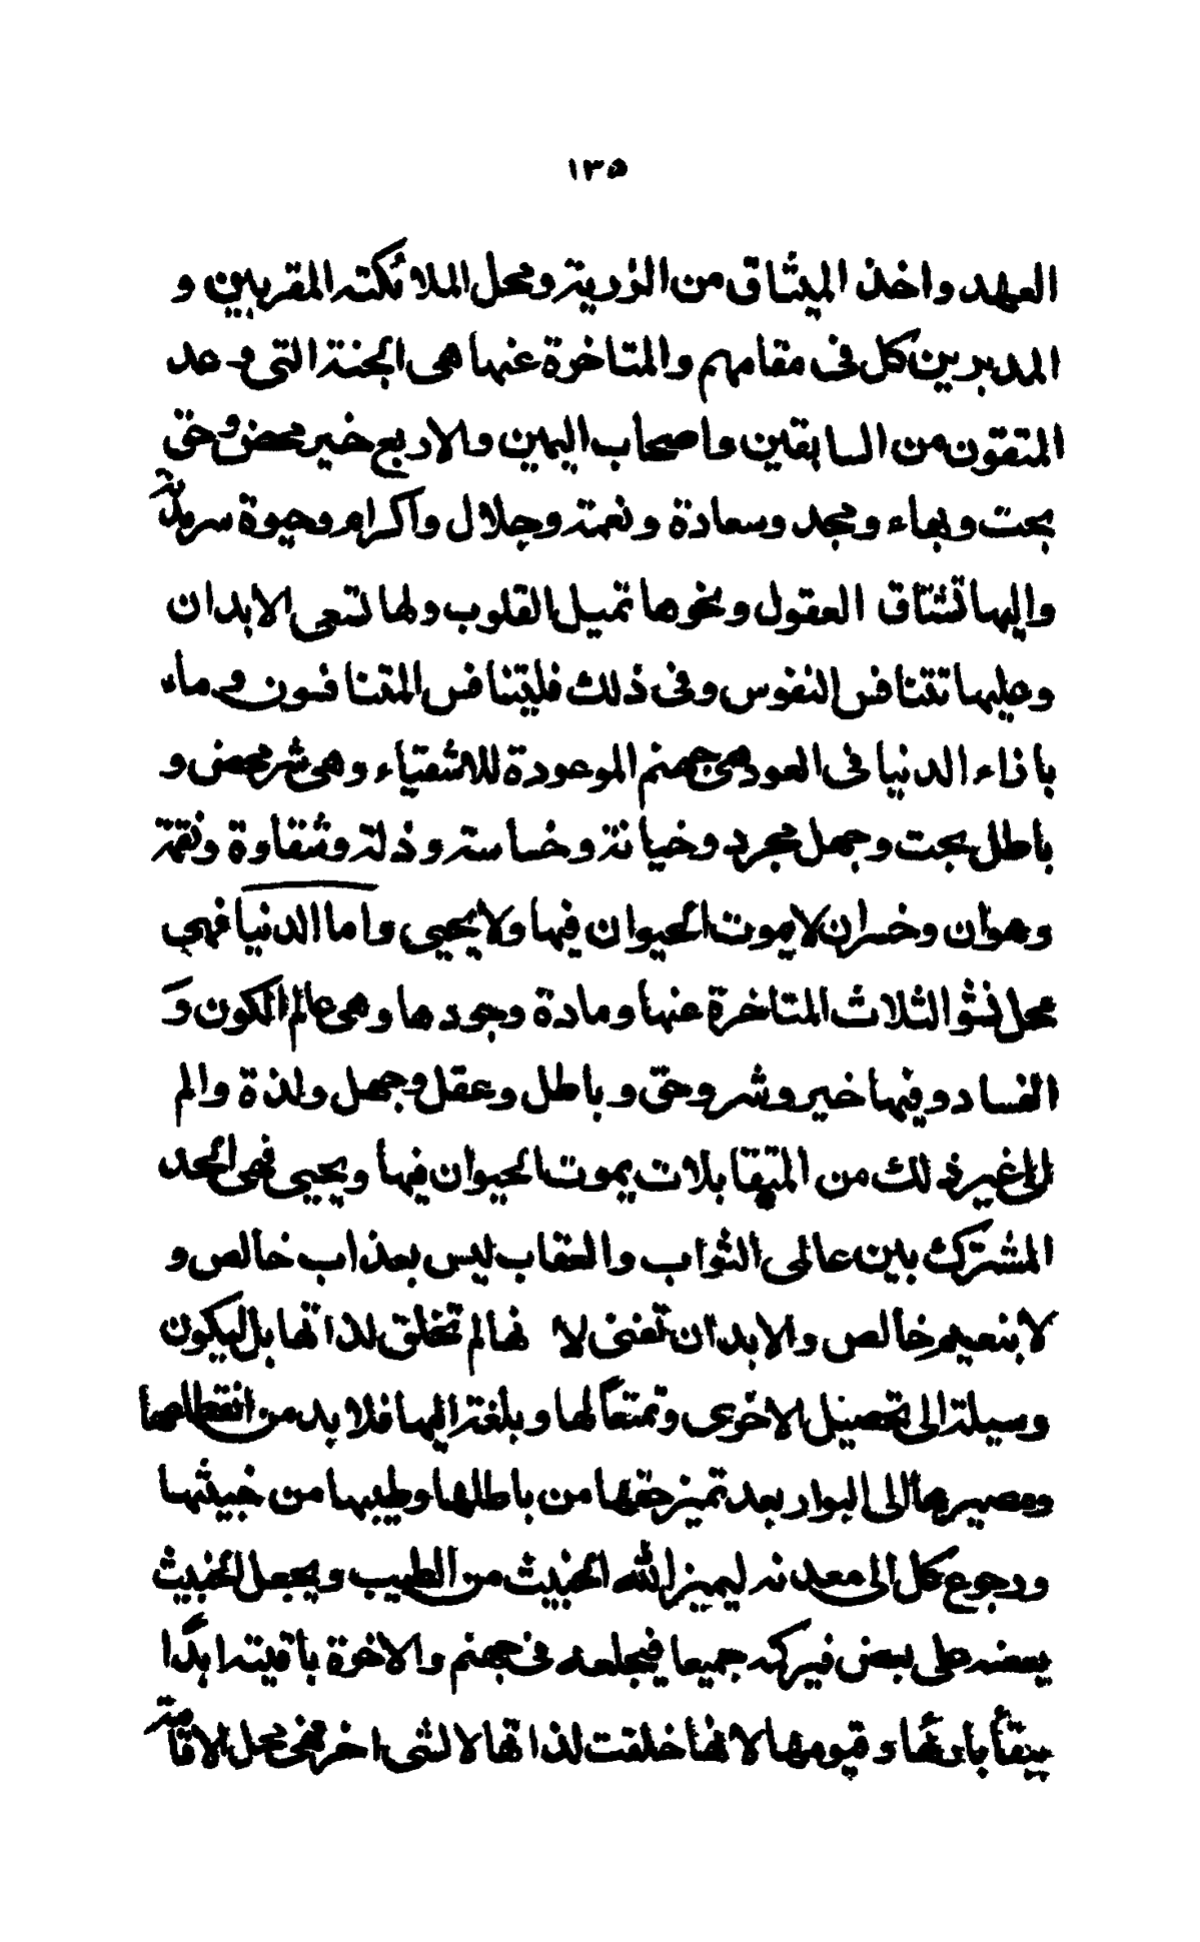 ١٣٥
العهد واخذ الميثاق من الذرية ومحل الملائكته المقربين و
المدبرين كل فى مقامهم والمتاخرة عنها هى الجنة التى وعد
المتقون من السابقين واصحاب اليمين والاربع خير محض وحق
بحت وبهاء ومجد وسعادة ونعمته وجلال واكرام وحيوة سرمدية
واليها تشتاق العقول ونحوها تميل القلوب ولها لتعى الابدان
وعليها تتنافس النفوس وفى ذلك فليتنافس المتنافسون وماء
باذاء الدنيا فى العود هى جهنم الموعودة للاشقياء وهى شر محض و
باطل بحت وجهل مجرد وخيانة وخساسته وذلة وشقاوة ونقمة
وهوان وخسران لايموت الحيوان فيها ولايحيى واما الدنيا فهى
محل نشؤ الثلاث المتاخرة عنها ومادة وجودها وهى عالم الكون وَ
الفساد وفيها خير وشر وحق وباطل وعقل وجهل ولذة والم
الى غير ذلك من المتقابلات يموت الحيوان فيها ويحيى فهى الحد
المشترك بين عالمى الثواب والعقاب ليس بعذاب خالص و
لابنعيم خالص والابدان تفنى لا نها لم تخلق لذاتها بل ليكون
وسيلة الى تحصيل الاخرى وتمتعاً لها وبلغة اليها فلابد من انقطاعها
ومصيرها الى البوار بعد تميز حقها من باطلها وطيبها من خبيثها
ورجوع كل الى معدنه ليميز الله الخبيث من الطيب ويجعل الخبيث
بعضه على بعض فيركمه جميعا فيجلعه فى جهنم والاخرة باقيته ابدًا
ببقأ بارئها وقيومها لانها خلقت لذاتها لالشى اخر فهى محل الاقامة